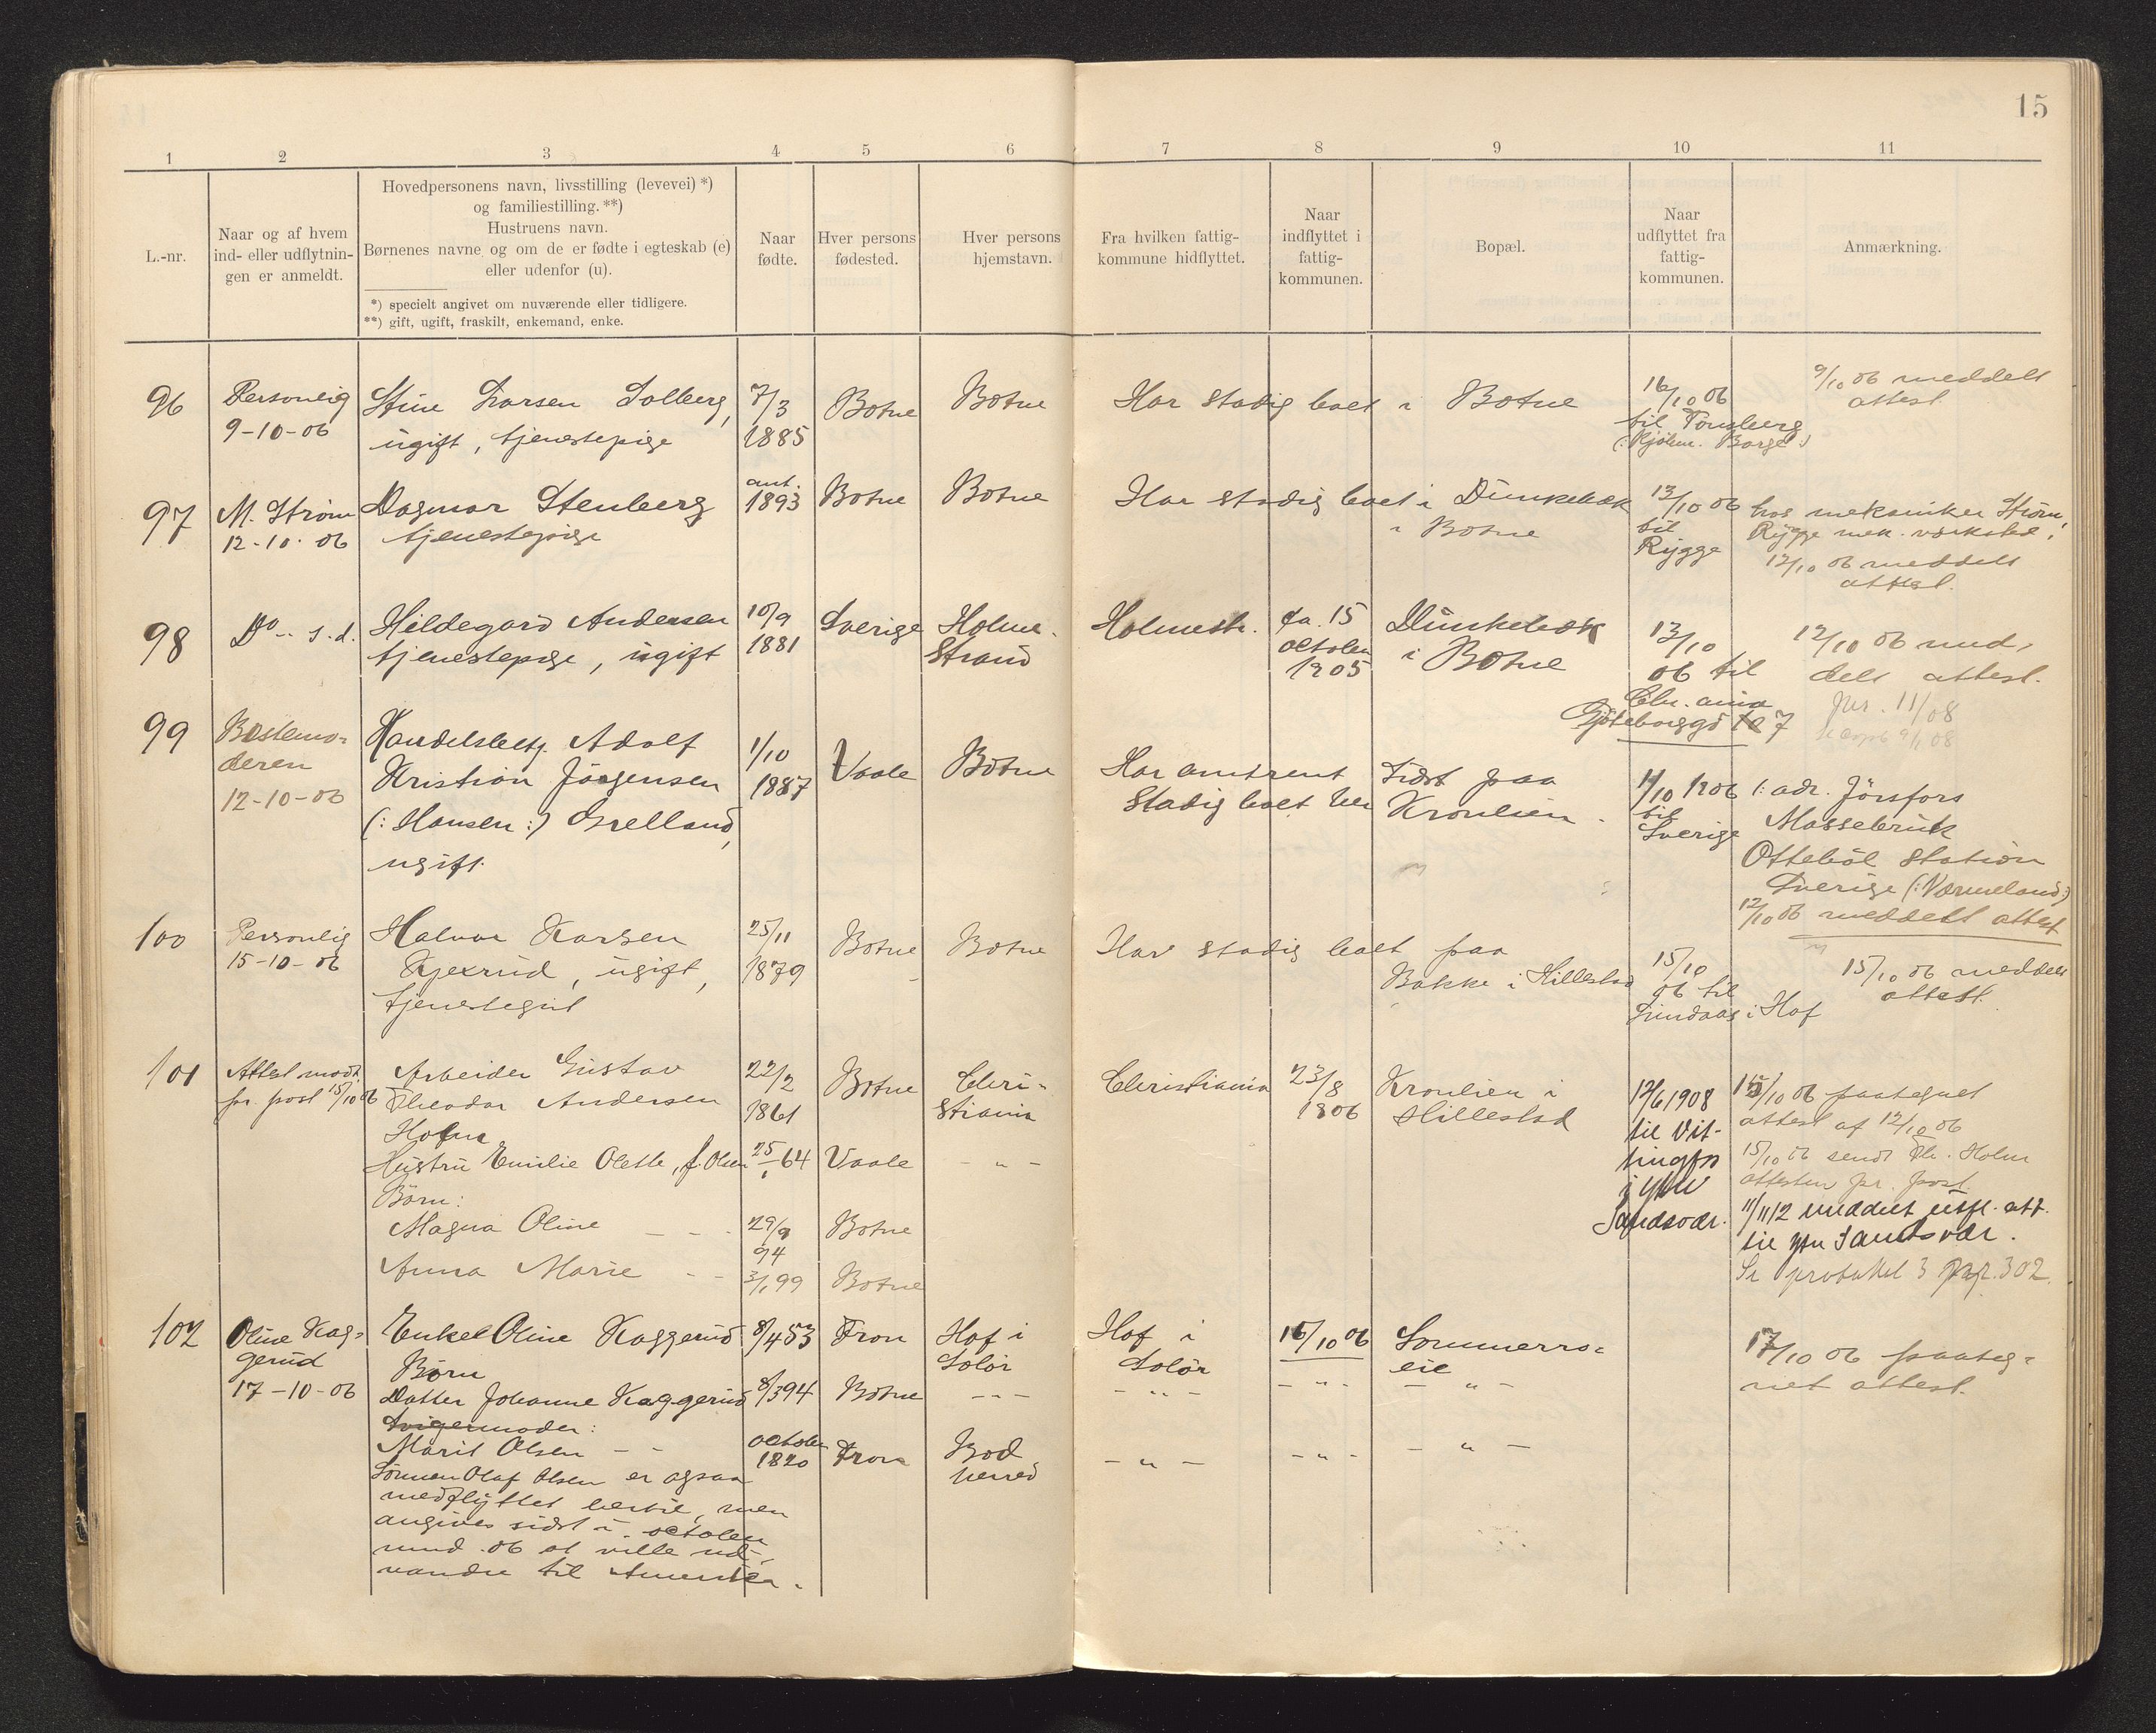 15
1 2 3 4 5 6 7 8 9 10 11
L.-nr.
Naar og af hvem
ind- eller udflytnin-
gen er anmeldt.
Hovedpersonens navn, livsstilling (levevei) *)
og familiestilling. **)
Hustruens navn.
Børnenes navne og om de er fødte i egteskab (e)
eller udenfor (u).
*) specielt angivet om nuværende eller tidligere.
**) gift, ugift, fraskilt, enkemand, enke.
Naar
fødte.
Hver persons
fødested.
Hver persons
hjemstavn.
Fra hvilken fattig-
kommune hidflyttet.
Naar
indflyttet i
fattig-
kommunen.
Bopæl.
Naar
udflyttet fra
fattig-
kommunen.
Anmærkning.
96
Personlig
9-10-06
Stine Larsen Solberg,
ugift, tjenestepige
7/3
1885
Botne
Botne
Har stadig boet i Botne
16/10 06
til Tønsberg
9/10 06 meddelt
attest
97
M. Strøm
12-10-06
Dagmar Stenberg
tjenestepige
ant.
1893
Botne
Botne
Har stadig boet i Dunkebæk
i Botne
13/10 06
til
Rygge
hos mekaniker Strøm,
Rygge mek. værksted.
12/10 06 meddelt
attest.
98
Do s. d.
Hildegard Andersen
tjenestepige, ugift
10/9
1881
Sverige
Holme-
strand
Holmestr.
ca. 15
october
1905
Dunkebæk
i Botne
13/10
06 til
12/10 06 med-
delt attest.
99
Bestemo-
deren
12-10-06
Handelsbetj. Adolf
Kristian Jörgensen
(: Hansen :) Grelland,
ugift
1/10
1887
Vaale
Botne
Har omtrent
stadig boet her
Sidst paa
Kronlien.
11/10 1906
til
Sverige
/: adr. Jörsfors
Massebruk
Ottebol station
Sverige (: Værmeland :)
12/10 06 meddelt attest
100
Personlig
15-10-06
Halvor Karsen
ugift,
tjenestegut
25/11
1879
Botne
Botne
Har stadig boet paa
Bakke i Hillestad
15/10
06 til
Lindaas i Hof
15/10 06 meddelt
attest.
101
Attest modt.
pr. post 15/10 06
Arbeider Gustav
Theodor Andersen
Holm
Hustru Emilie Olette, f. Olsen
Börn:
Magna Oline - -
Anna Marie - -
22/2
1861
64
29/9
94
99
Botne
Vaale
Botne
Botne
Chri-
stiania
- " -
Christiania
23/8
1906
Kronlien i
Hillestad
12/6 1908
til Vit-
tingfos
i ytre
Sandsvær.
15/10 06 paategnet
attest af 12/10 06
15/10 06 sendt Th. Holm
attesten pr. post
11/11 12 meddelt utfl. att.
til ytre Sandsvær.
Se protokol 3 pag. 302.
102
Oline Kag-
gerud
17-10-06
Enke Oline Kaggerud
Börn
Datter Johanne Kaggerud
Svigermoder:
Marit Olsen - -
Sönnen Olaf Olsen er ogsaa
medflyttet hertil, men
angives sidst i october
mnd. 06 at ville ud-
vandre til Amerika.
8/4 53
8/3 94
october
1820
Fron
Botne
Fron
Hof i
Solör
- " -
Bod
herred
Hof i
Solör
- " -
- " -
16/10 06
- " -
- " -
Sommerro-
eie
- " -
- " -
17/10 06 paateg-
net attest.